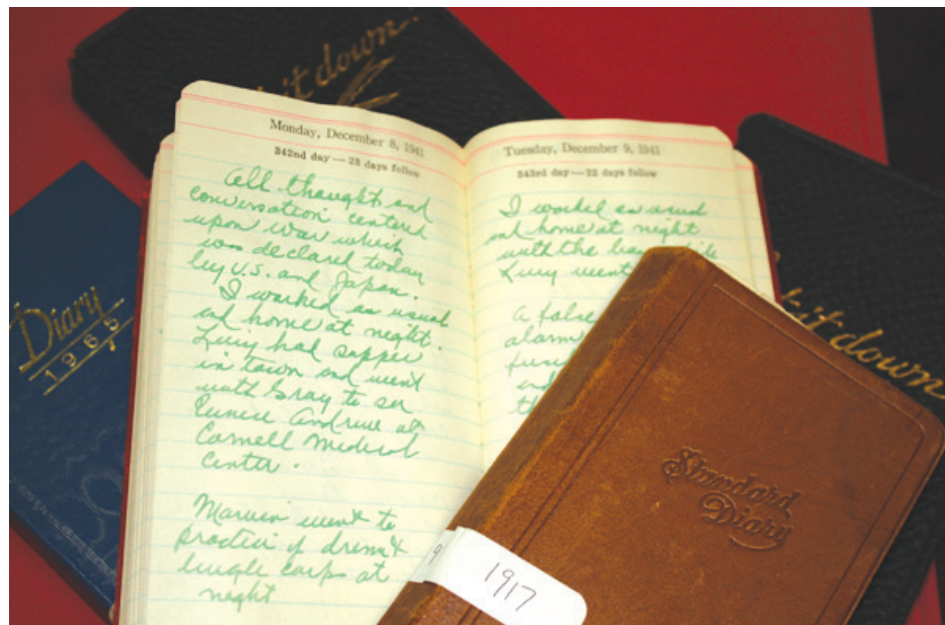 it down.
Monday, December 8, 1941
342nd day — 23 days follow
All thought and
conversation centered
upon war which
was declared today
by U.S. and Japan.
I worked as usual
and home at night.
Lucy had supper
in town and went
with Gray to see
Eunice Andrews at
Cornell Medical
Center.
Marvin went to
practice of drum &
bugle corps at
night
Tuesday, December 9, 1941
343rd day — 22 days follow
I worked as usual
and home at night
with the
Lucy went
A false
alarm
Diary
it down
Standard
Diary
1917